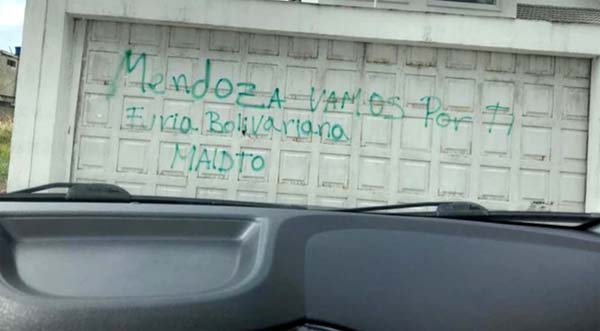 MendozA VAMOS Por Ti
Furia Bolivariana
MAlDTO